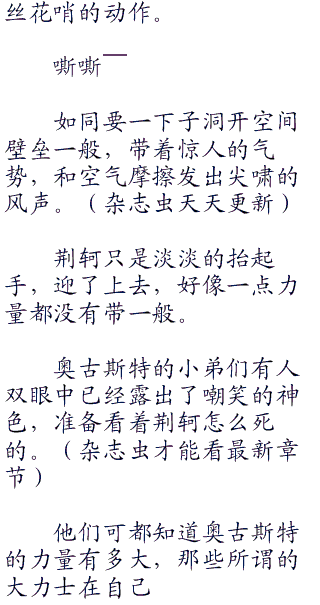 丝花哨的动作。
嘶嘶——
如同要一下子洞开空间
壁垒一般，带着惊人的气
势，和空气摩擦发出尖啸的
风声。（杂志虫天天更新）
荆轲只是淡淡的抬起
手，迎了上去，好像一点力
量都没有带一般。
奥古斯特的小弟们有人
双眼中已经露出了嘲笑的神
色，准备看着荆轲怎么死
的。（杂志虫才能看最新章
节）
他们可都知道奥古斯特
的力量有多大，那些所谓的
大力士在自己